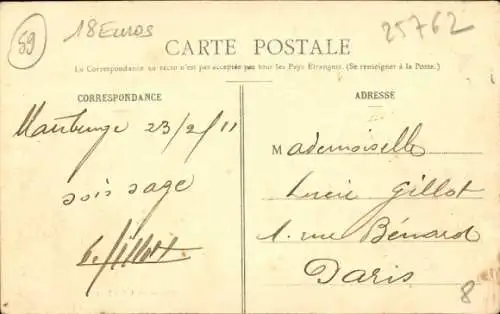 59
18 Euros
25762
CARTE POSTALE
La Correspondance au recto n'est pas acceptée par tous les Pays Étrangers. (Se renseigner à la Poste.)
CORRESPONDANCE
Maubeuge 23/2/11
sois sage
Gillot
ADRESSE
Mademoiselle
Lucie Gillot
1. rue Bénard
Paris
8